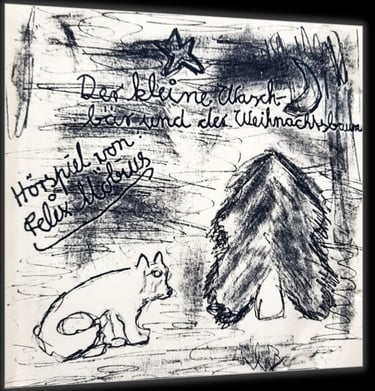 Der kleine Wasch-
bär und der Weihnachtsbaum
Hörspiel von
Felix Möbius